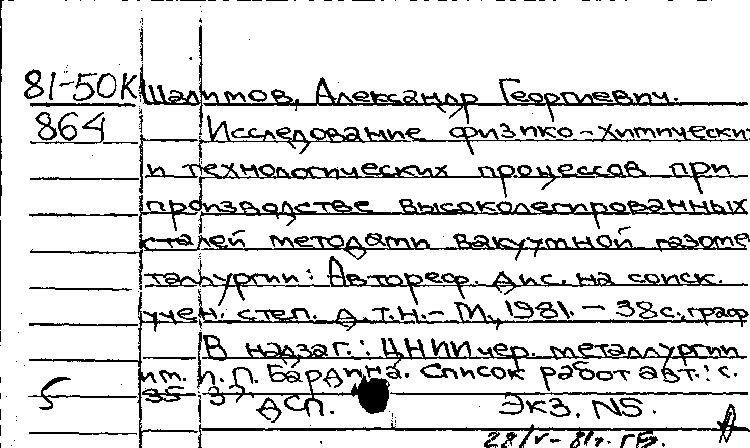 81-50К Шалимов, Александр Георгиевич.
864 Исследование физико-химически
и технологических процессов при
производстве высоколегированных
сталей методами вакуумной газоме
таллургии: Автореф. дис. на соиск.
учен. степ. д.т.н. - М., 1981. - 38 с. граф
В надзаг.: ЦНИИ чер. металлургии
им. И.П. Бардина. Список работ авт.: с.
5 35-37.
ДСП. Экз. N5.
28/V-81г.